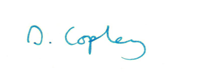 D. Copley